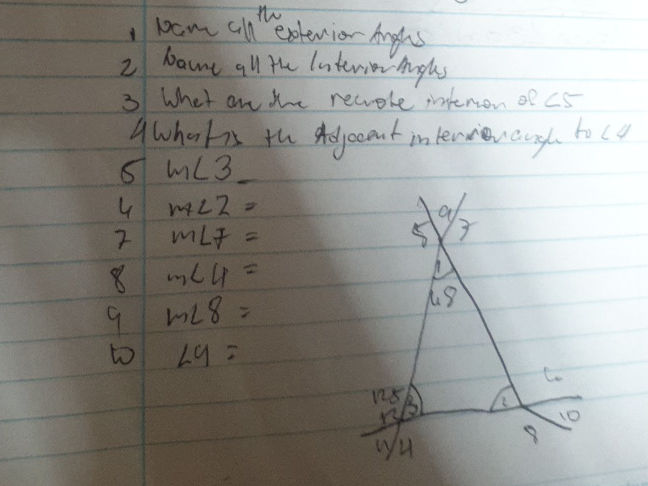 1 Name all the exterior Angles
2 Name all the Interior Angles
3 What are the remote interior of ∠5
4 What is the Adjacent interior angle to ∠4
5 m∠3 =
4 m∠2 =
7 m∠7 =
8 m∠4 =
9 m∠8 =
10 ∠9 =
9
5 7
1
48
125 3 2 6
12 10
11 4 8